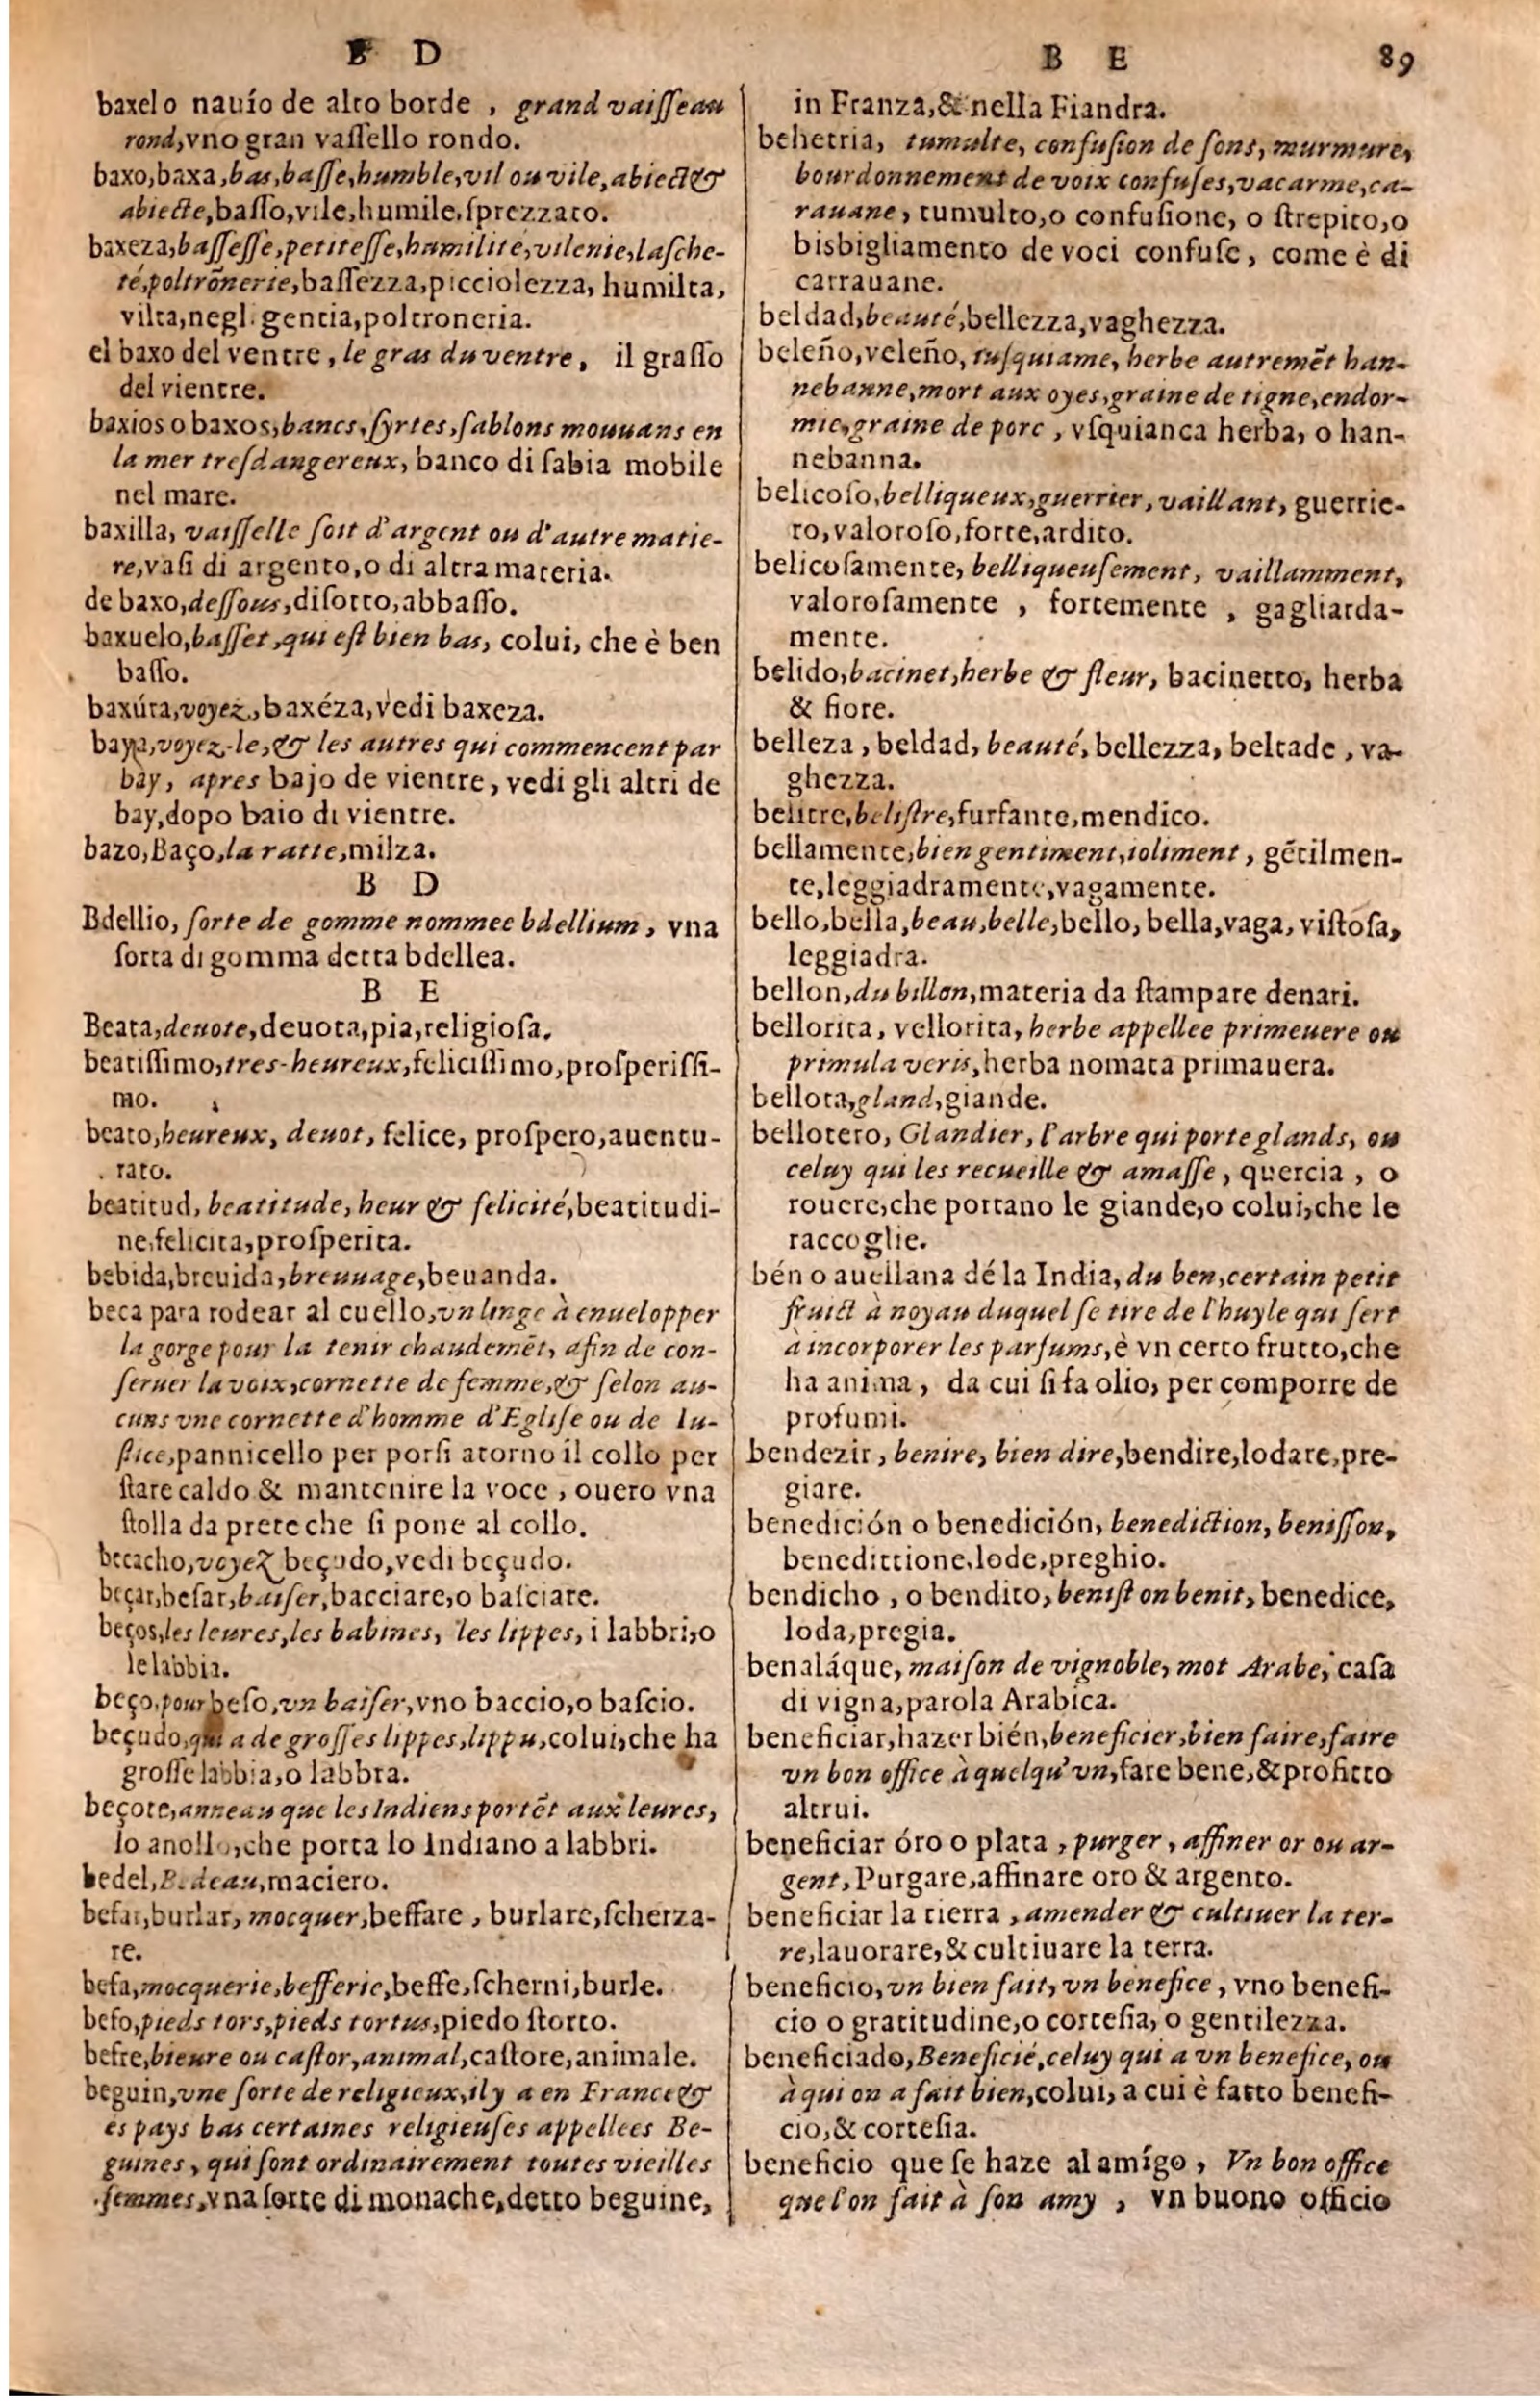 B D
baxel o nauío de alto borde , grand vaiſſeau
rond,vno gran vaſſello rondo.
baxo,baxa,bas,baſſe,humble,vil ou vile,abiect&
abiecte,baſſo,vile,humile,ſprezzato.
baxeza,baſſeſſe,petiteſſe,humilité,vilenie,laſche-
té,poltrõnerie,baſſezza,picciolezza, humilta,
vilta,negligentia,poltroneria.
el baxo del ventre, le gras du ventre, il graſſo
del vientre.
baxios o baxos,bancs,ſyrtes,ſablons mouuans en
la mer treſdangereux, banco di ſabia mobile
nel mare.
baxilla, vaiſſelle ſoit d'argent ou d'autre matie-
re,vaſi di argento,o di altra materia.
de baxo,deſſous,diſotto,abbaſſo.
baxuelo,baſſet,qui eſt bien bas, colui, che è ben
baſſo.
baxúra,voyez,baxéza,vedi baxeza.
baya,voyez-le,& les autres qui commencent par
bay, apres bajo de vientre, vedi gli altri de
bay,dopo baio di vientre.
bazo,Baço,la ratte,milza.
B D
Bdellio, ſorte de gomme nommee bdellium, vna
ſorta di gomma detta bdellea.
B E
Beata,deuote,deuota,pia,religioſa.
beatiſſimo,tres-heureux,feliciſſimo,proſperiſſi-
mo.
beato,heureux, deuot, felice, proſpero,auentu-
rato.
beatitud, beatitude, heur & felicité,beatitudi-
ne,felicita,proſperita.
bebida,breuida,breuuage,beuanda.
beca para rodear al cuello,vn linge à enuelopper
la gorge pour la tenir chaudemẽt, afin de con-
ſeruer la voix,cornette de femme,& ſelon au-
cuns vne cornette d'homme d'Egliſe ou de Iu-
ſtice,pannicello per porſi atorno il collo per
ſtare caldo & mantenire la voce , ouero vna
ſtolla da prete che ſi pone al collo.
becacho,voyez beçudo,vedi beçudo.
beçar,beſar,baiſer,bacciare,o baſciare.
beços,les leures,les babines, les lippes, i labbri,o
le labbia.
beço,pour beſo,vn baiſer,vno baccio,o baſcio.
beçudo,qui a de groſſes lippes,lippu,colui,che ha
groſſe labbia,o labbra.
beçote,anneau que les Indiens portẽt aux leures,
lo anollo,che porta lo Indiano a labbri.
bedel,Bedeau,maciero.
befar,burlar, mocquer,beffare , burlare,ſcherza-
re.
befa,mocquerie,befferie,beffe,ſcherni,burle.
befo,pieds tors,pieds tortus,piedo ſtorto.
befre,bieure ou caſtor,animal,caſtore,animale.
beguin,vne ſorte de religieux,il y a en France &
es pays bas certaines religieuſes appellees Be-
guines, qui ſont ordinairement toutes vieilles
femmes,vna ſorte di monache,detto beguine,
B E 89
in Franza,& nella Fiandra.
behetria, tumulte, confuſion de ſons, murmure,
bourdonnement de voix confuſes,vacarme,ca-
rauane, tumulto,o confuſione, o ſtrepito,o
bisbigliamento de voci confuſe, come è di
carrauane.
beldad,beauté,bellezza,vaghezza.
beleño,veleño, iuſquiame, herbe autremẽt han-
nebanne,mort aux oyes,graine de tigne,endor-
mie,graine de porc , vſquianca herba, o han-
nebanna.
belicoſo,belliqueux,guerrier, vaillant, guerrie-
ro,valoroſo,forte,ardito.
belicoſamente, belliqueuſement, vaillamment,
valoroſamente , fortemente , gagliarda-
mente.
belido,bacinet,herbe & fleur, bacinetto, herba
& fiore.
belleza , beldad, beauté,bellezza, beltade , va-
ghezza.
belitre,beliſtre,furfante,mendico.
bellamente,bien gentiment,ioliment, gẽtilmen-
te,leggiadramente,vagamente.
bello,bella,beau,belle,bello, bella,vaga, viſtoſa,
leggiadra.
bellon,du billon,materia da ſtampare denari.
bellorita, vellorita, herbe appellee primeuere ou
primula veris,herba nomata primauera.
bellota,gland,giande.
bellotero, Glandier, l'arbre qui porte glands, ou
celuy qui les recueille & amaſſe, quercia , o
rouere,che portano le giande,o colui,che le
raccoglie.
bén o auellana dé la India, du ben,certain petit
fruict à noyau duquel ſe tire de l'huyle qui ſert
à incorporer les parfums,è vn certo frutto,che
ha anima , da cui ſi fa olio, per comporre de
profumi.
bendezir, benire, bien dire,bendire,lodare,pre-
giare.
benedición o benedición, benediction, beniſſon,
benedittione,lode,preghio.
bendicho , o bendito, beniſt on benit, benedice,
loda,pregia.
benaláque, maiſon de vignoble, mot Arabe, caſa
di vigna,parola Arabica.
beneficiar,hazer bién,beneficier,bien faire,faire
vn bon office à quelqu'vn,fare bene,& profitto
altrui.
beneficiar óro o plata , purger, affiner or ou ar-
gent, Purgare,affinare oro & argento.
beneficiar la tierra , amender & cultiuer la ter-
re,lauorare,& cultiuare la terra.
beneficio,vn bien fait, vn benefice, vno benefi-
cio o gratitudine,o corteſia, o gentilezza.
beneficiado,Beneficié,celuy qui a vn benefice, ou
à qui on a fait bien,colui, a cui è fatto benefi-
cio,& corteſia.
beneficio que ſe haze al amígo , Vn bon office
que l'on fait à ſon amy , vn buono officio